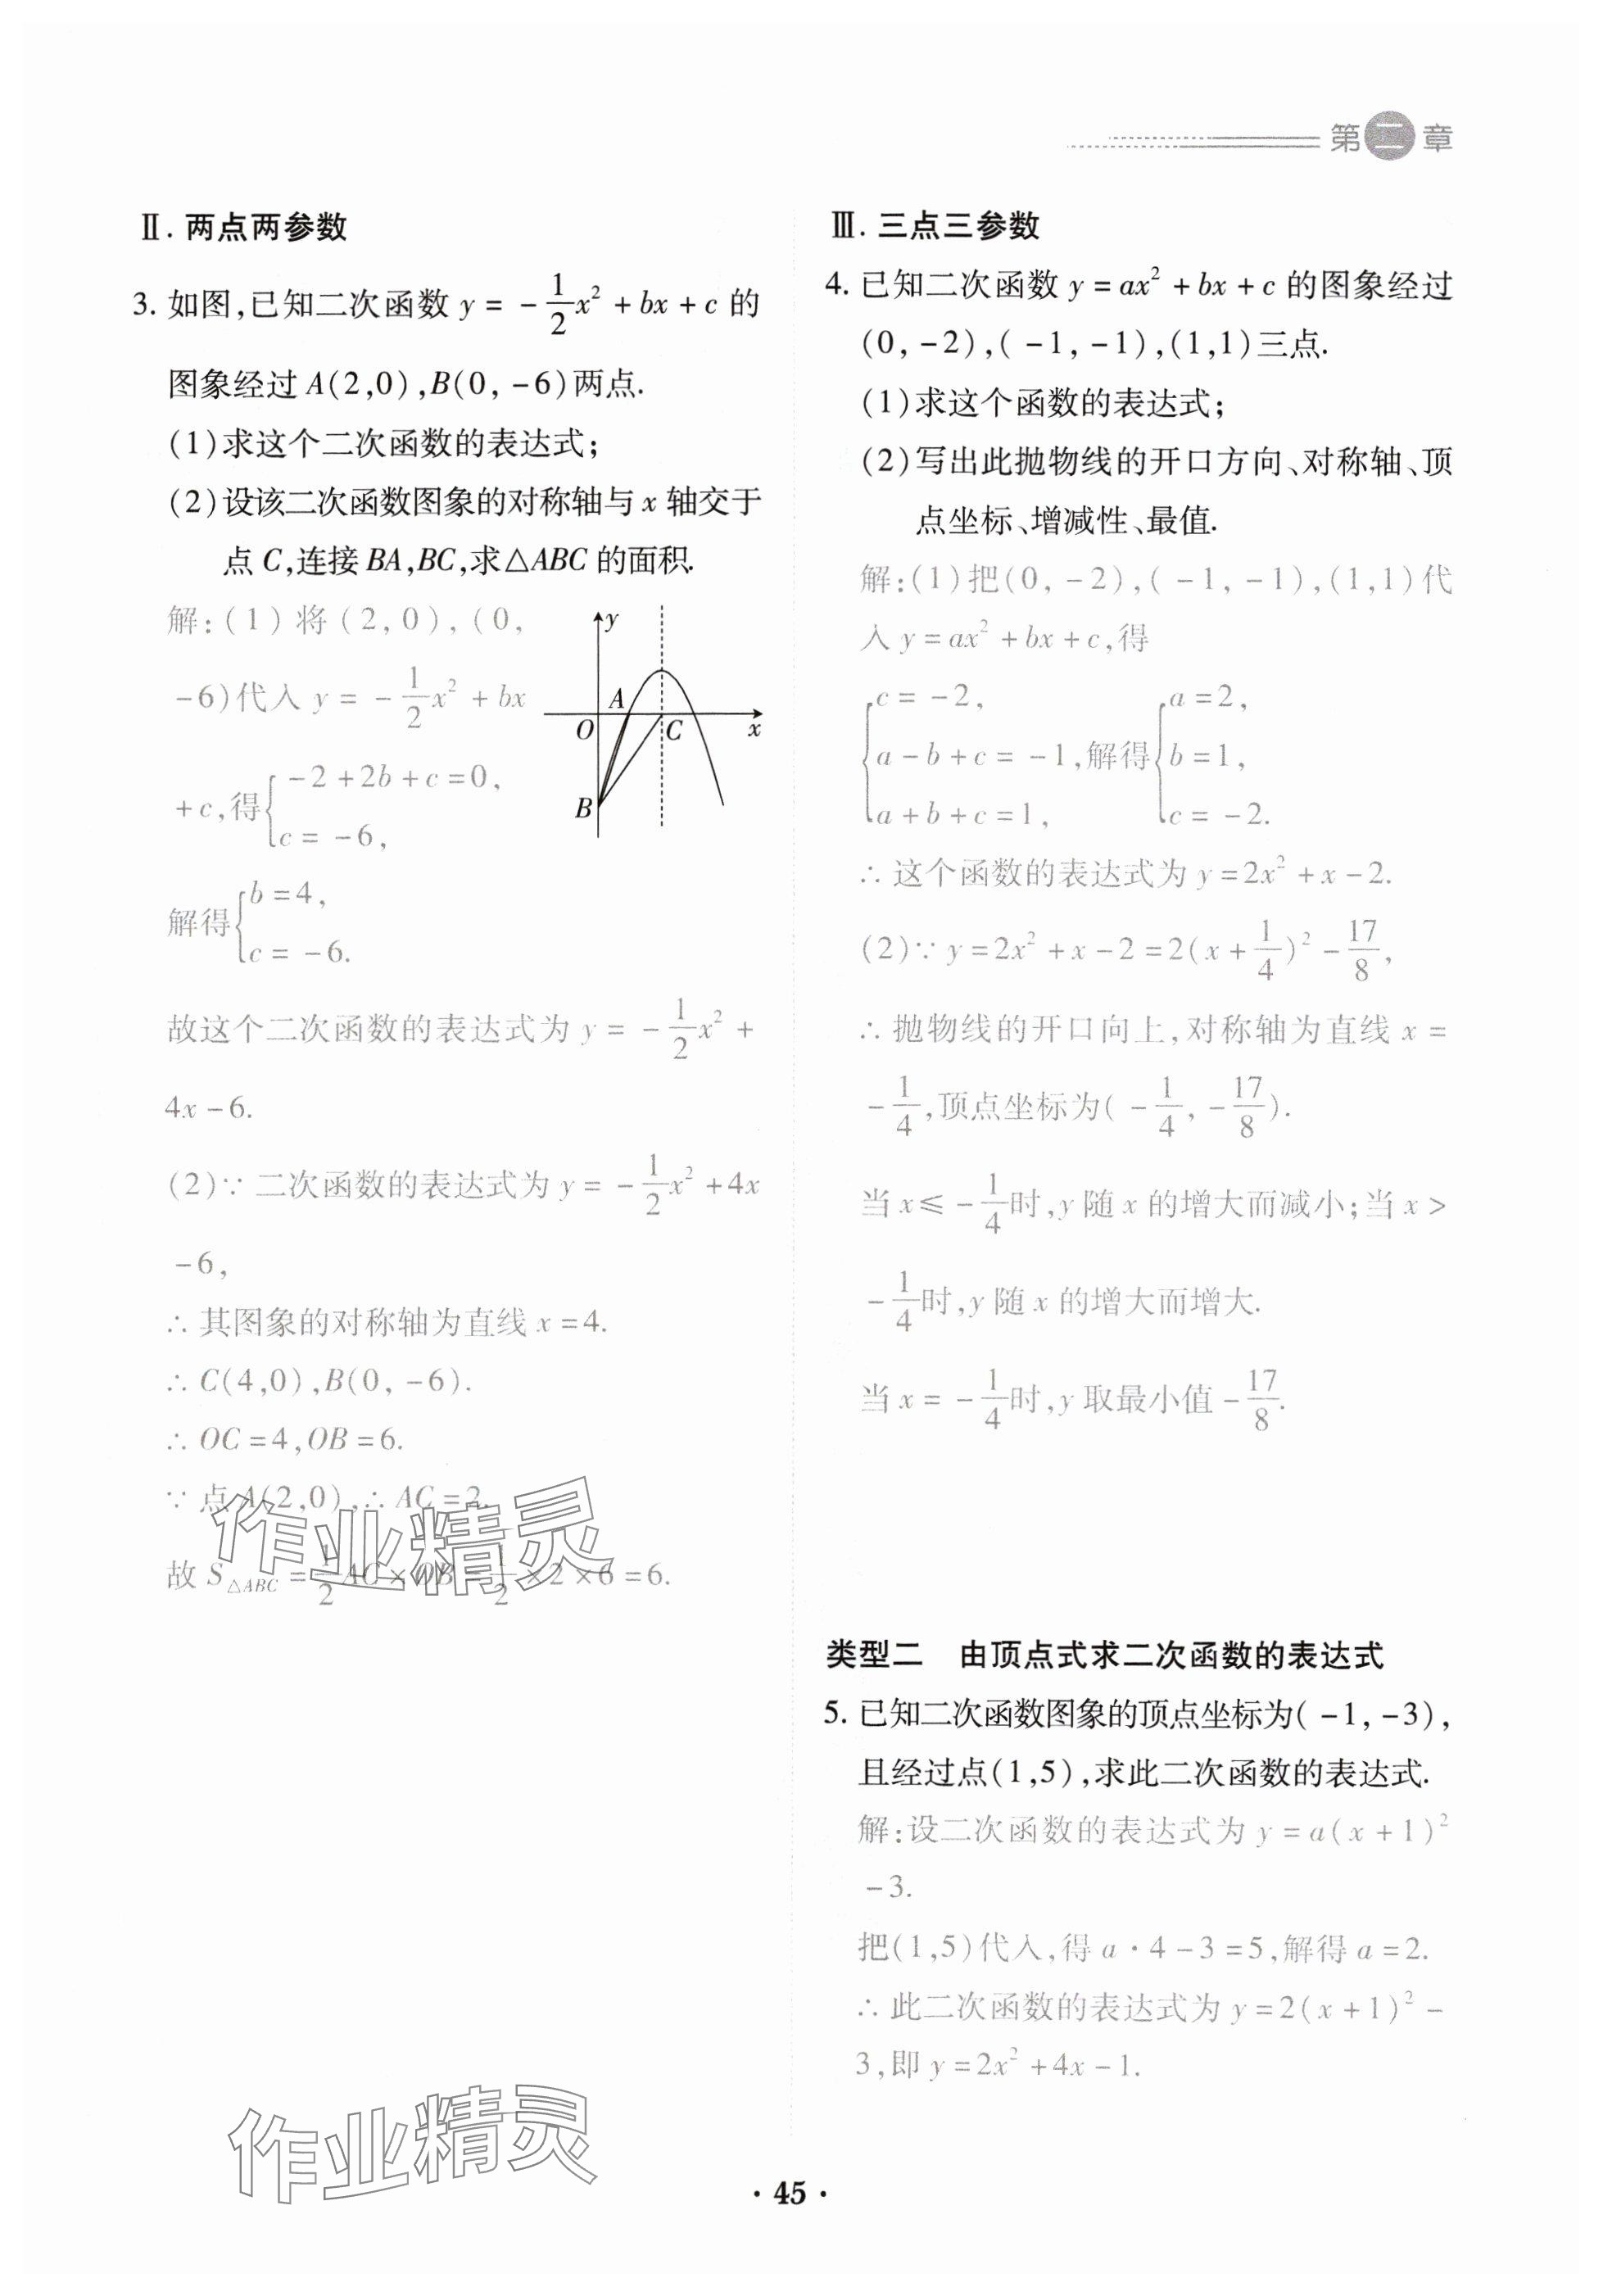 第二章
Ⅱ. 两点两参数
3. 如图,已知二次函数 y = -1/2x² + bx + c 的
图象经过 A(2,0),B(0,-6)两点.
(1)求这个二次函数的表达式;
(2)设该二次函数图象的对称轴与 x 轴交于
点 C,连接 BA,BC,求△ABC 的面积.
解:(1)将(2,0),(0,
-6)代入 y = -1/2x² + bx
+c,得{-2+2b+c=0,
c=-6,
y
A
O
C
x
B
解得{b=4,
c=-6.
故这个二次函数的表达式为 y = -1/2x² +
4x-6.
(2)∵二次函数的表达式为 y = -1/2x² +4x
-6,
∴其图象的对称轴为直线 x=4.
∴C(4,0),B(0,-6).
∴OC=4,OB=6.
∵点 A(2,0),∴AC=2.
故 S△ABC = 1/2AC×OB = 1/2×2×6=6.
作业精灵
Ⅲ. 三点三参数
4. 已知二次函数 y = ax² + bx + c 的图象经过
(0,-2),(-1,-1),(1,1)三点.
(1)求这个函数的表达式;
(2)写出此抛物线的开口方向、对称轴、顶
点坐标、增减性、最值.
解:(1)把(0,-2),(-1,-1),(1,1)代
入 y=ax²+bx+c,得
{c=-2, {a=2,
a-b+c=-1,解得 b=1,
a+b+c=1, c=-2.
∴这个函数的表达式为 y=2x²+x-2.
(2)∵y=2x²+x-2=2(x+1/4)²-17/8,
∴抛物线的开口向上,对称轴为直线 x =
-1/4,顶点坐标为(-1/4,-17/8).
当 x≤-1/4时,y 随 x 的增大而减小;当 x>
-1/4时,y 随 x 的增大而增大.
当 x=-1/4时,y 取最小值-17/8.
类型二 由顶点式求二次函数的表达式
5. 已知二次函数图象的顶点坐标为(-1,-3),
且经过点(1,5),求此二次函数的表达式.
解:设二次函数的表达式为 y=a(x+1)²
-3.
把(1,5)代入,得 a·4-3=5,解得 a=2.
∴此二次函数的表达式为 y=2(x+1)²-
3,即 y=2x²+4x-1.
作业精灵
·45·